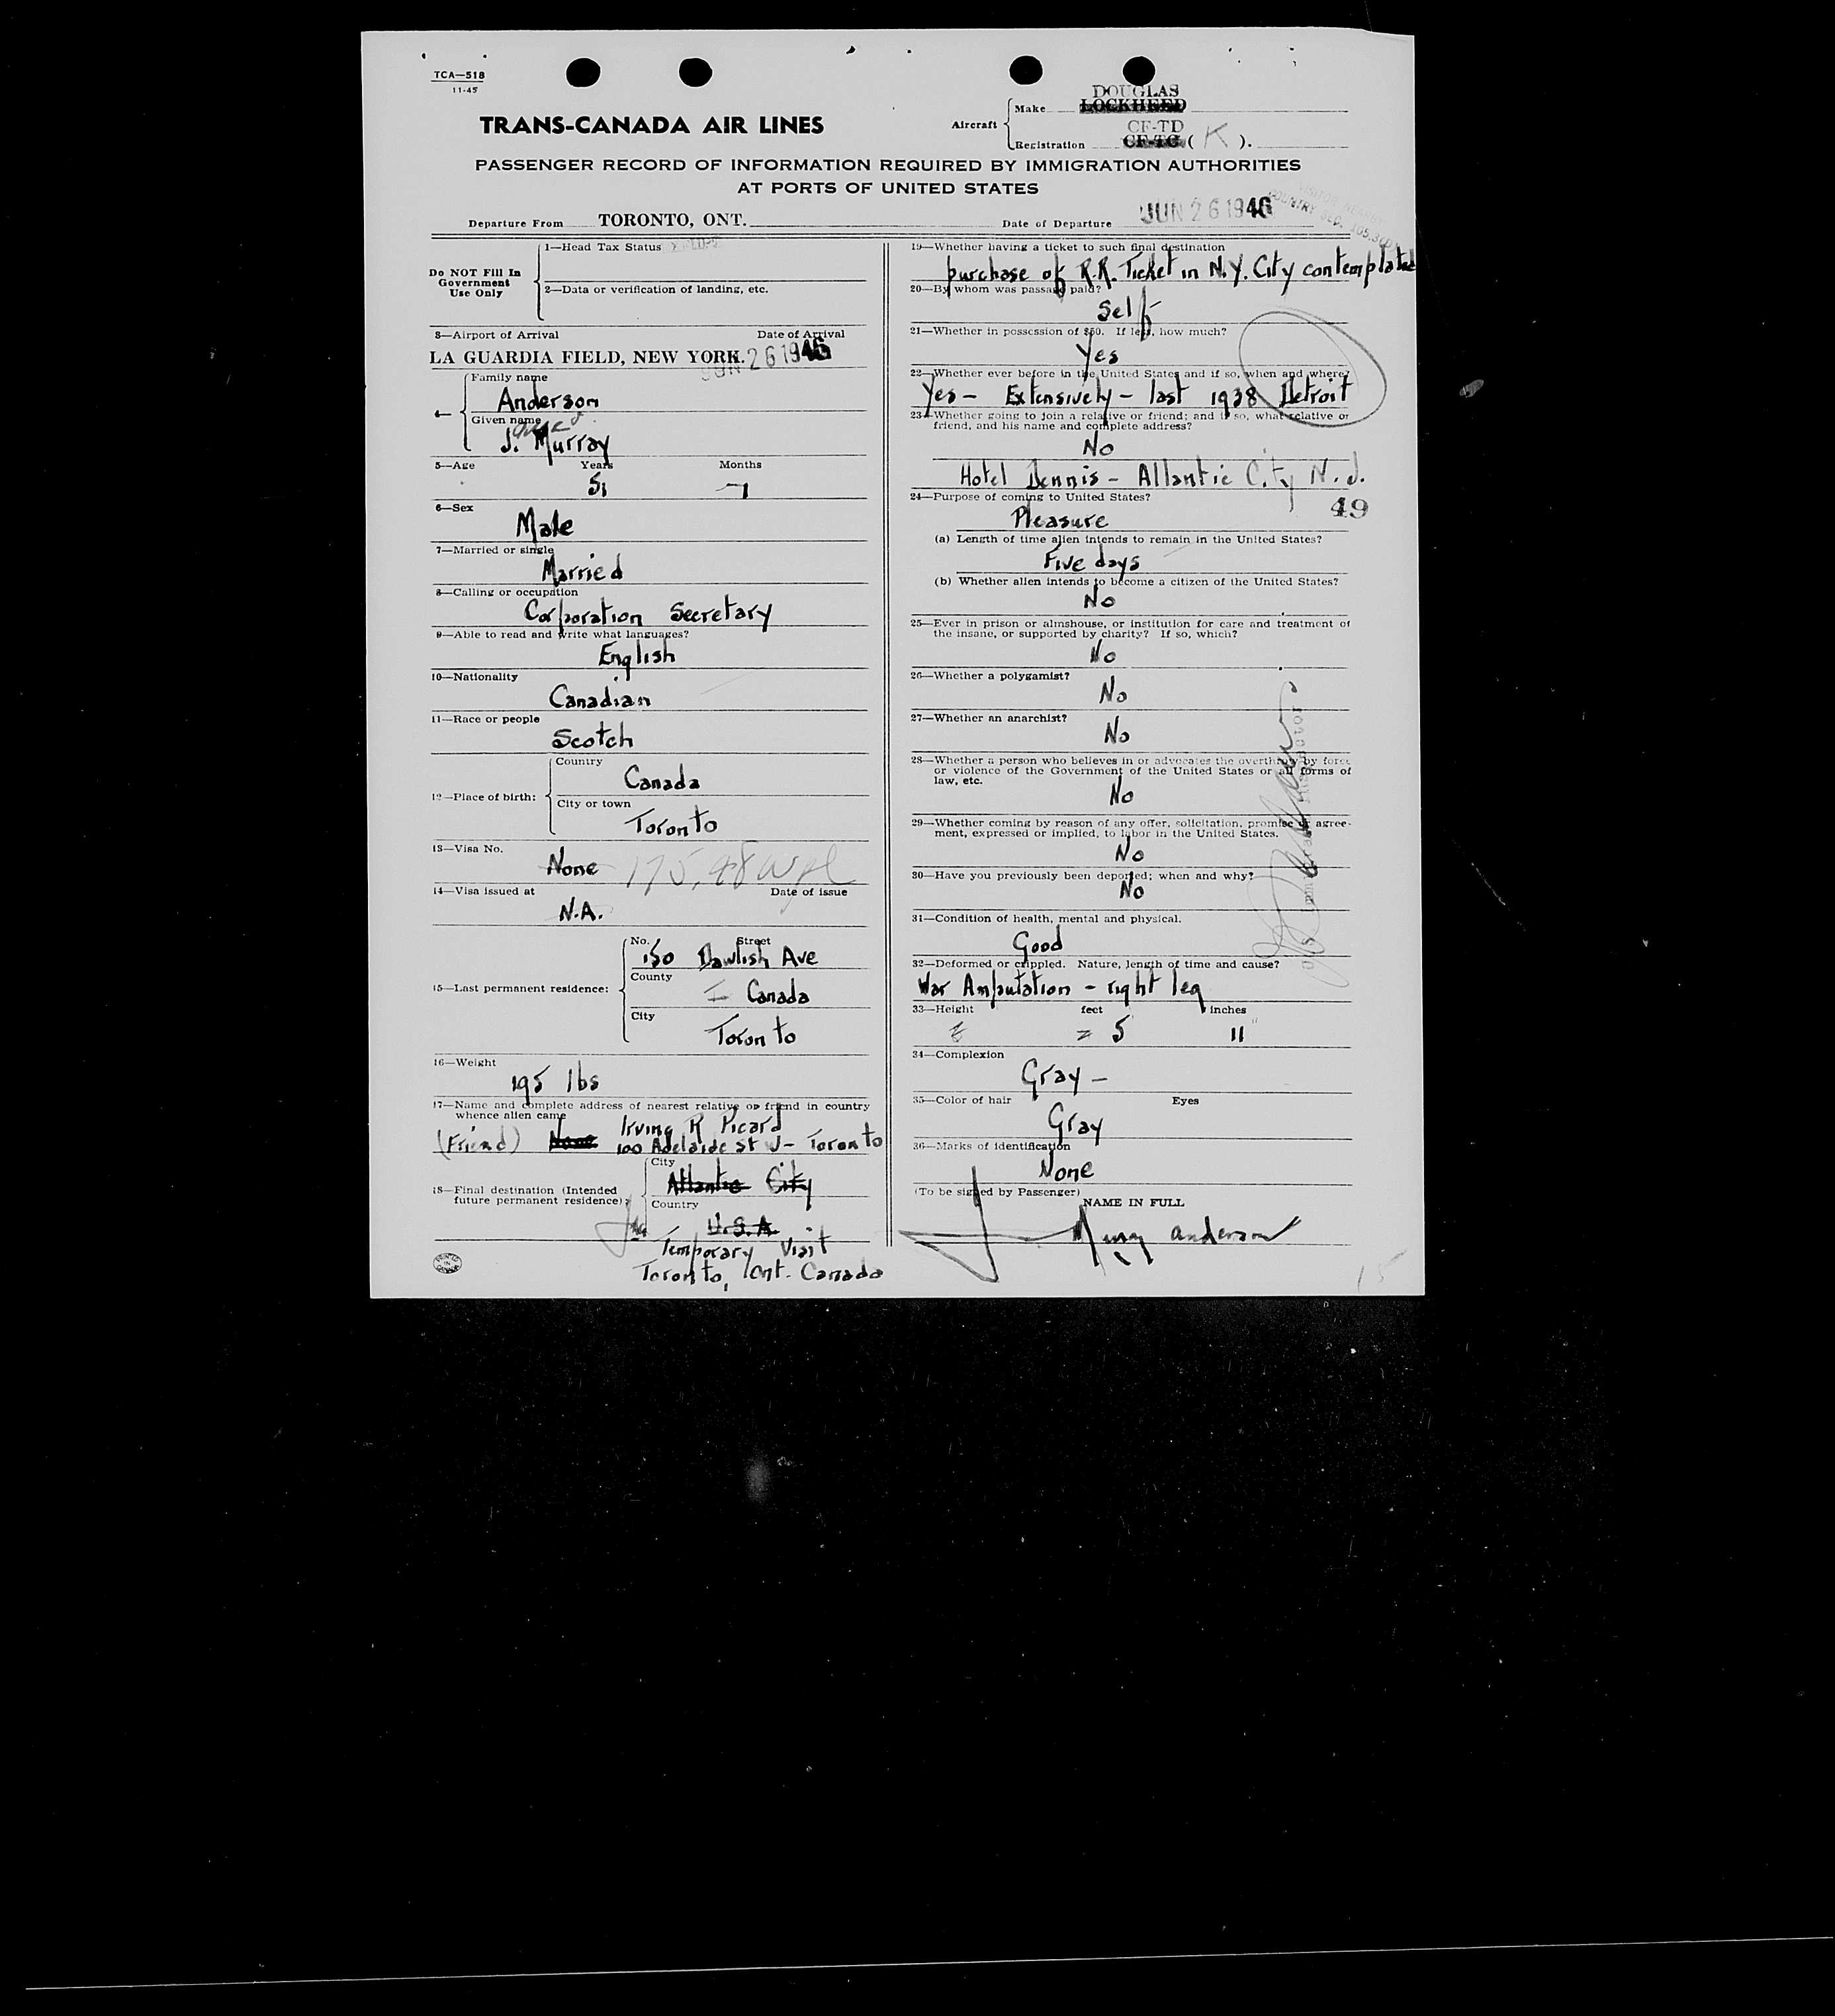 TCA—518
11-45
DOUGLAS
Make LOCKHEED
TRANS-CANADA AIR LINES
Aircraft
CF-TD
Registration CF-TC ( K ).
PASSENGER RECORD OF INFORMATION REQUIRED BY IMMIGRATION AUTHORITIES
AT PORTS OF UNITED STATES
Departure From TORONTO, ONT.
Date of Departure JUN 26 1946
Do NOT Fill In
Government
Use Only
1—Head Tax Status
2—Data or verification of landing, etc.
3—Airport of Arrival Date of Arrival
LA GUARDIA FIELD, NEW YORK. JUN 26 1946
4—
Family name
Anderson
Given name
J. Murray
5—Age Years Months
51 7
6—Sex
Male
7—Married or single
Married
8—Calling or occupation
Corporation Secretary
9—Able to read and write what languages?
English
10—Nationality
Canadian
11—Race or people
Scotch
12—Place of birth:
Country
Canada
City or town
Toronto
13—Visa No.
None
14—Visa issued at Date of issue
N.A.
15—Last permanent residence:
No. Street
150 Dawlish Ave
County
Canada
City
Toronto
16—Weight
195 lbs
17—Name and complete address of nearest relative or friend in country
whence alien came
Irving R Picard
(Friend) None 100 Adelaide St W - Toronto
18—Final destination (Intended
future permanent residence):
City
Atlantic City
Country
U.S.A.
Temporary Visit
Toronto, Ont. Canada
19—Whether having a ticket to such final destination
purchase of R.R. Ticket in N.Y. City contemplated
20—By whom was passage paid?
Self
21—Whether in possession of $50. If less, how much?
Yes
22—Whether ever before in the United States and if so, when and where?
Yes - Extensively - last 1938 Detroit
23—Whether going to join a relative or friend; and if so, what relative or
friend, and his name and complete address?
No
Hotel Dennis - Atlantic City N.J.
24—Purpose of coming to United States?
49
Pleasure
(a) Length of time alien intends to remain in the United States?
Five days
(b) Whether alien intends to become a citizen of the United States?
No
25—Ever in prison or almshouse, or institution for care and treatment of
the insane, or supported by charity? If so, which?
No
26—Whether a polygamist?
No
27—Whether an anarchist?
No
28—Whether a person who believes in or advocates the overthrow by force
or violence of the Government of the United States or all forms of
law, etc.
No
29—Whether coming by reason of any offer, solicitation, promise or agree-
ment, expressed or implied, to labor in the United States.
No
30—Have you previously been deported; when and why?
No
31—Condition of health, mental and physical.
Good
32—Deformed or crippled. Nature, length of time and cause?
War Amputation - right leg
33—Height feet inches
5 11
34—Complexion
Gray -
35—Color of hair Eyes
Gray
36—Marks of identification
None
(To be signed by Passenger)
NAME IN FULL
J Murray Anderson